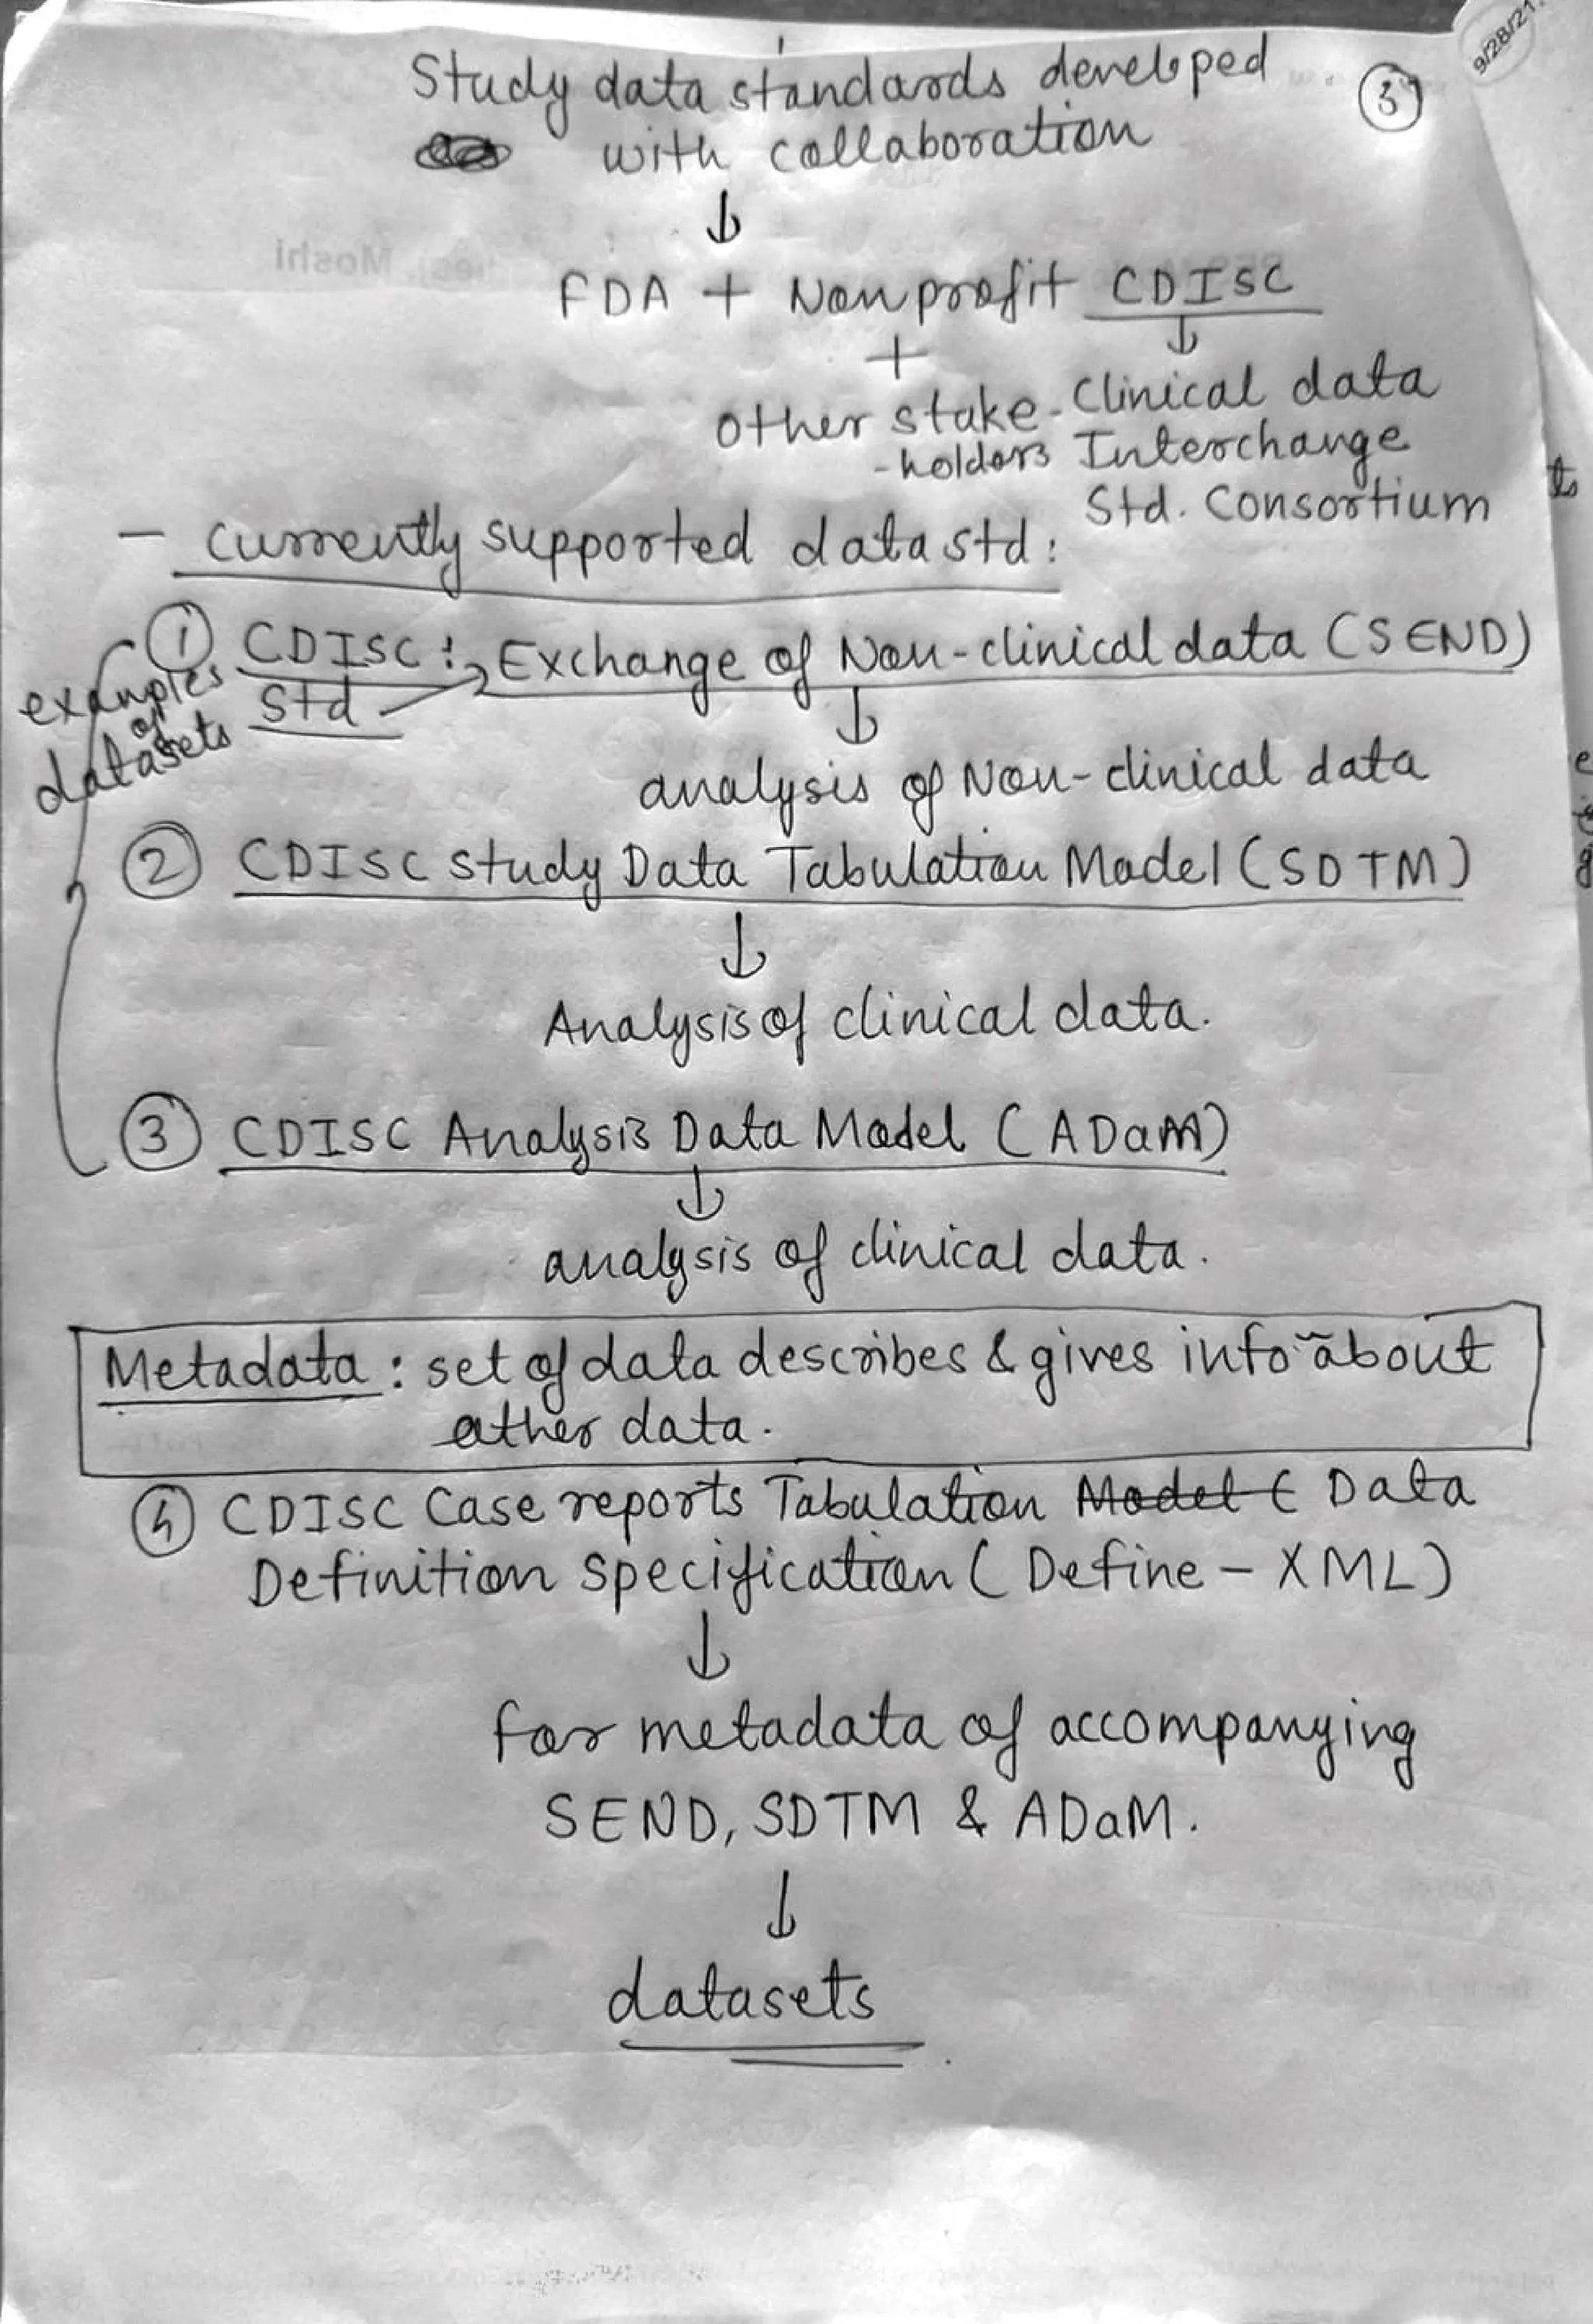 9/28/21
3
Study data standards developed
with collaboration
↓
FDA + Nonprofit CDISC
+ ↓
other stake- Clinical data
-holders Interchange
Std. Consortium
- currently supported data std:
① CDISC: Exchange of Non-clinical data (SEND)
Std
examples
of
datasets
↓
analysis of Non-clinical data
② CDISC study Data Tabulation Model (SDTM)
↓
Analysis of clinical data.
③ CDISC Analysis Data Model (ADaM)
↓
analysis of clinical data.
Metadata: set of data describes & gives info about
other data.
④ CDISC Case reports Tabulation Model ( Data
Definition specification ( Define - XML)
↓
for metadata of accompanying
SEND, SDTM & ADaM.
↓
datasets